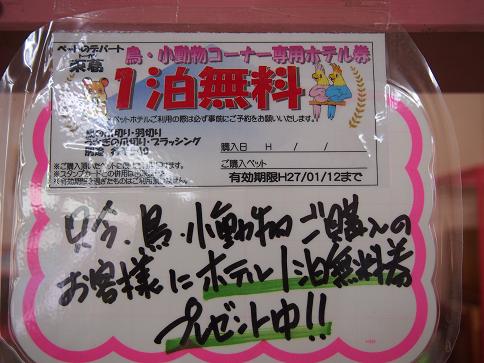 ペットのデパート
東葛
鳥・小動物コーナー専用ホテル券
1泊無料
ペットホテルご利用の際は必ず事前にご予約をお願いいたします。
爪切り・羽切り
うさぎの爪切り・ブラッシング
購入日 H / /
ご購入ペット
※スタンプカードとの併用は
※有効期限を過ぎたものはご利用頂けません。
有効期限H27/01/12まで
只今、鳥・小動物ご購入の
お客様にホテル1泊無料券
プレゼント中!!